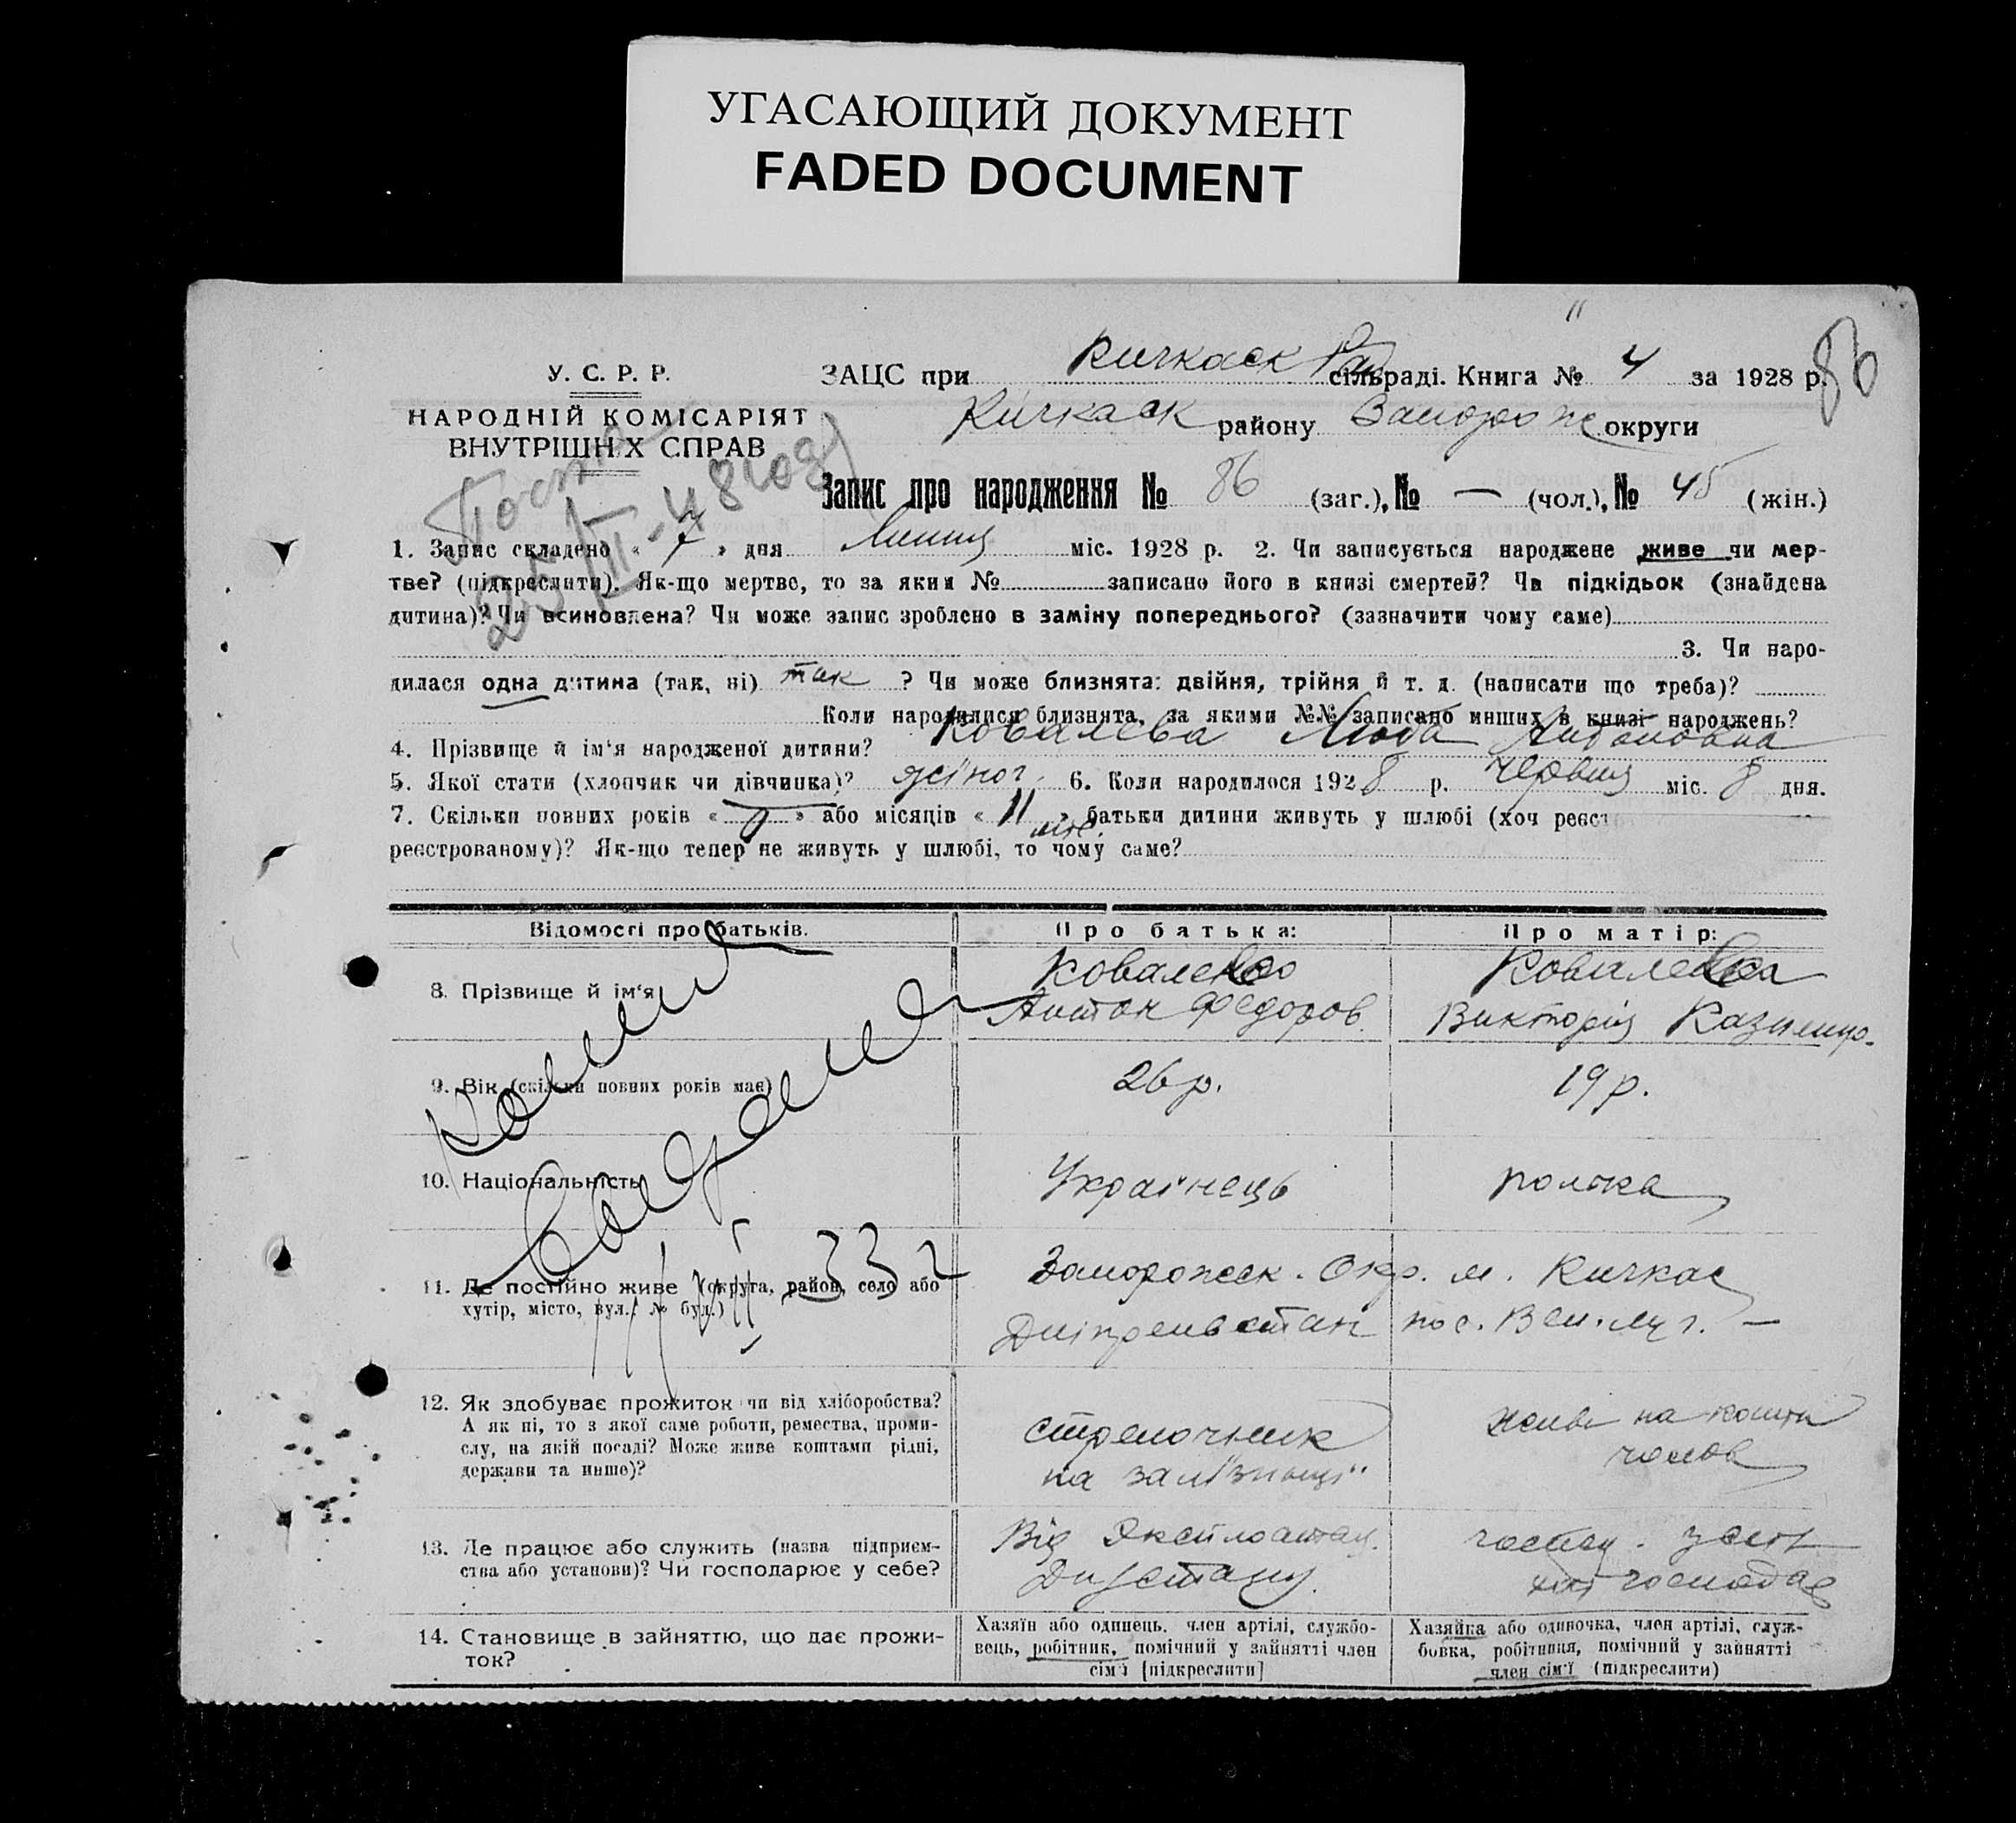 УГАСАЮЩИЙ ДОКУМЕНТ
FADED DOCUMENT
11
86
У. С. Р. Р.
НАРОДНІЙ КОМІСАРІЯТ
ВНУТРІШНІХ СПРАВ
ЗАЦС при Кичкаск сільраді. Книга № 4 за 1928 р.
Кичкаск району Запорож округи
Запис про народження № 86 (заг.), № — (чол.), № 45 (жін.)
1. Запис складено « 7 » дня Липця міс. 1928 р. 2. Чи записується народжене живе чи мер-
тве? (підкреслити). Як-що мертве, то за яким № записано його в книзі смертей? Чи підкідьок (знайдена
дитина)? Чи всиновлена? Чи може запис зроблено в заміну попереднього? (зазначити чому саме)
3. Чи наро-
дилася одна дитина (так, ні) так ? Чи може близнята: двійня, трійня й т. д. (написати що треба)?
Коли народилися близнята, за якими №№ записано инших в книзі народжень?
4. Прізвище й ім'я народженої дитини? Ковалева Люба Антоновна
5. Якої стати (хлопчик чи дівчинка)? жіноч. 6. Коли народилося 1928 р. червня міс. 8 дня.
7. Скільки повних років « » або місяців « 11 міс. » батьки дитини живуть у шлюбі (хоч реєст
реєстрованому)? Як-що тепер не живуть у шлюбі, то чому саме?
Відомості про батьків.
Про батька:
Про матір:
8. Прізвище й ім'я
Ковалево
Антон Федоров.
Ковалева
Викторія Казимир.
9. Вік (скільки повних років має)
26 р.
19 р.
10. Національність
Українець
полька
11. Де постійно живе (округа, район, село або
хутір, місто, вул. № буд.)
Запорожск. Окр. м. Кичкас
Дніпрельстан пос. Вел. луг. —
12. Як здобуває прожиток чи від хліборобства?
А як ні, то з якої саме роботи, ремества, проми-
слу, на якій посаді? Може живе коштами рідні,
держави та инше)?
стрелочник
на залізниці
живе на кошти
чолов
13. Де працює або служить (назва підприєм-
ства або установи)? Чи господарює у себе?
Від Эксплоатац.
господ
14. Становище в зайняттю, що дає прожи-
ток?
Хазяїн або одинець, член артілі, службо-
вець, робітник, помічний у зайнятті член
сім'ї [підкреслити]
Хазяйка або одиночка, член артілі, служ-
бовка, робітниця, помічний у зайнятті
член сім'ї (підкреслити)